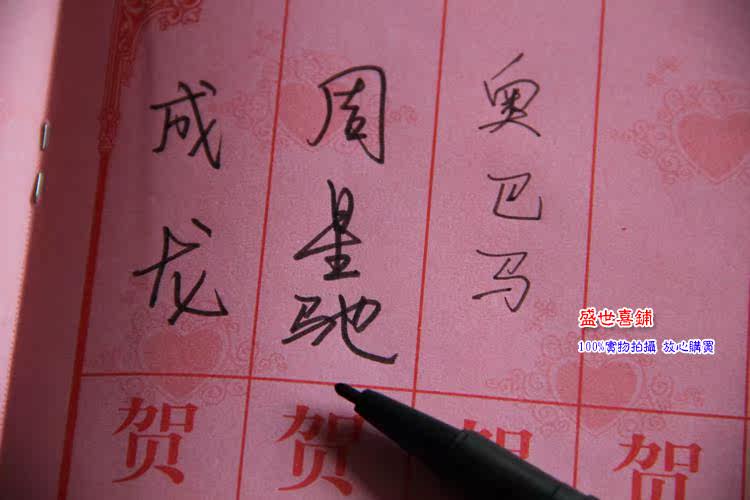 成龙
周星驰
奥巴马
贺
贺
贺
贺
盛世喜鋪
100%實物拍攝 放心購買